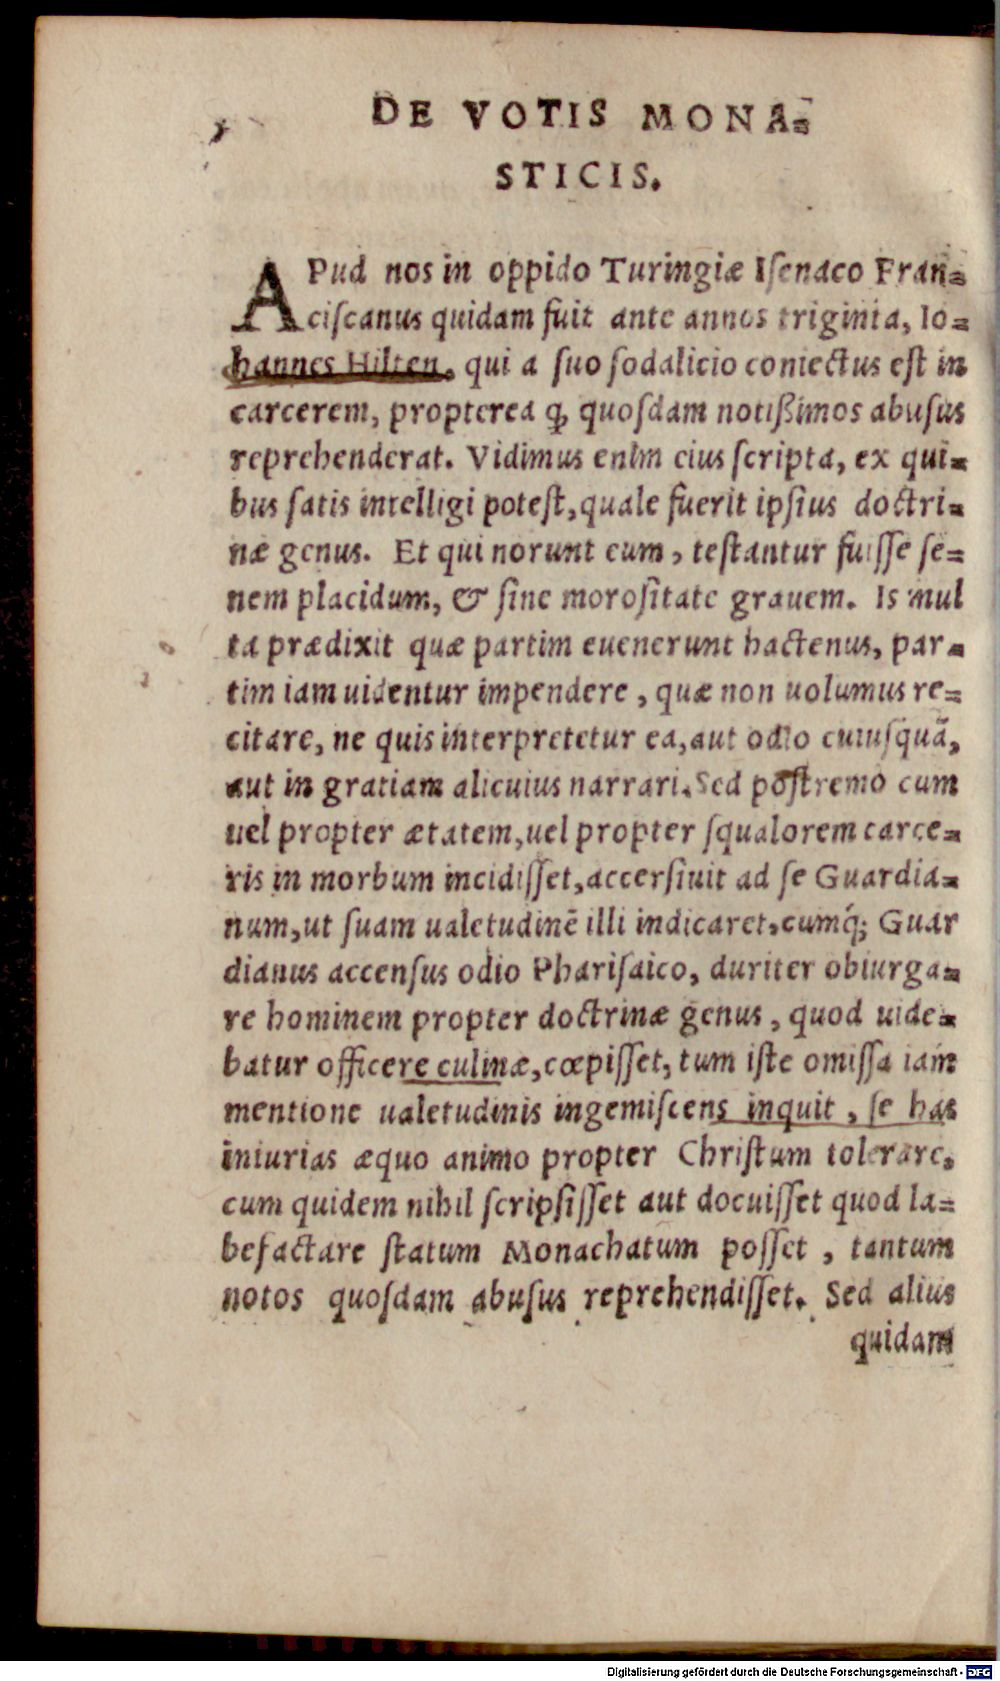 DE VOTIS MONA=
STICIS.
APud nos in oppido Turingiæ Isenaco Fran=
ciscanus quidam fuit ante annos triginta, Io=
hannes Hilten, qui a suo sodalicio coniectus est in
carcerem, propterea ꝙ quosdam notißimos abusus
reprehenderat. Vidimus enim eius scripta, ex qui=
bus satis intelligi potest, quale fuerit ipsius doctri=
næ genus. Et qui norunt eum, testantur fuisse se=
nem placidum, & sine morositate grauem. Is mul
ta prædixit quæ partim euenerunt hactenus, par=
tim iam uidentur impendere, quæ non uolumus re=
citare, ne quis interpretetur ea, aut odio cuiusquã,
aut in gratiam alicuius narrari. Sed postremo cum
uel propter ætatem, uel propter squalorem carce=
ris in morbum incidisset, accersiuit ad se Guardia=
num, ut suam ualetudinē illi indicaret, cumq́; Guar
dianus accensus odio Pharisaico, duriter obiurga=
re hominem propter doctrinæ genus, quod uide=
batur officere culinæ, cœpisset, tum iste omissa iam
mentione ualetudinis ingemiscens inquit, se has
iniurias æquo animo propter Christum tolerare,
cum quidem nihil scripsisset aut docuisset quod la=
befactare statum Monachatum posset, tantum
notos quosdam abusus reprehendisset. Sed alius
quidam
Digitalisierung gefördert durch die Deutsche Forschungsgemeinschaft - DFG